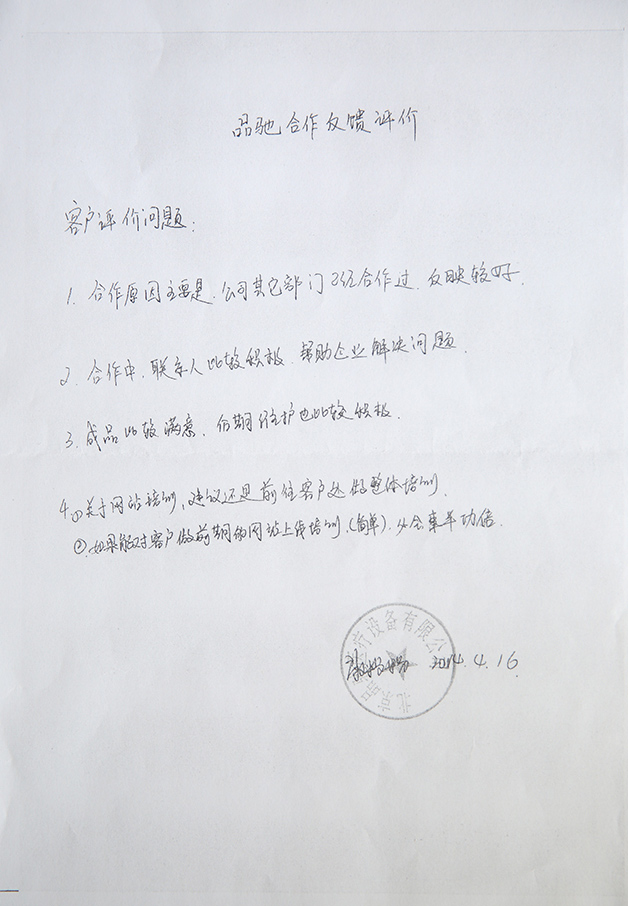 品驰合作反馈评价
客户评价问题:
1. 合作原因主要是, 公司其它部门已经合作过, 反映较好.
2. 合作中, 联系人比较积极, 帮助企业解决问题.
3. 成品比较满意, 后期维护也比较积极.
4.①关于网站培训, 建议还是前往客户处做整体培训.
②.如果能对客户做前期的网站上线培训,(简单), 会事半功倍.
北京品 医疗设备有限公
2014.4.16.